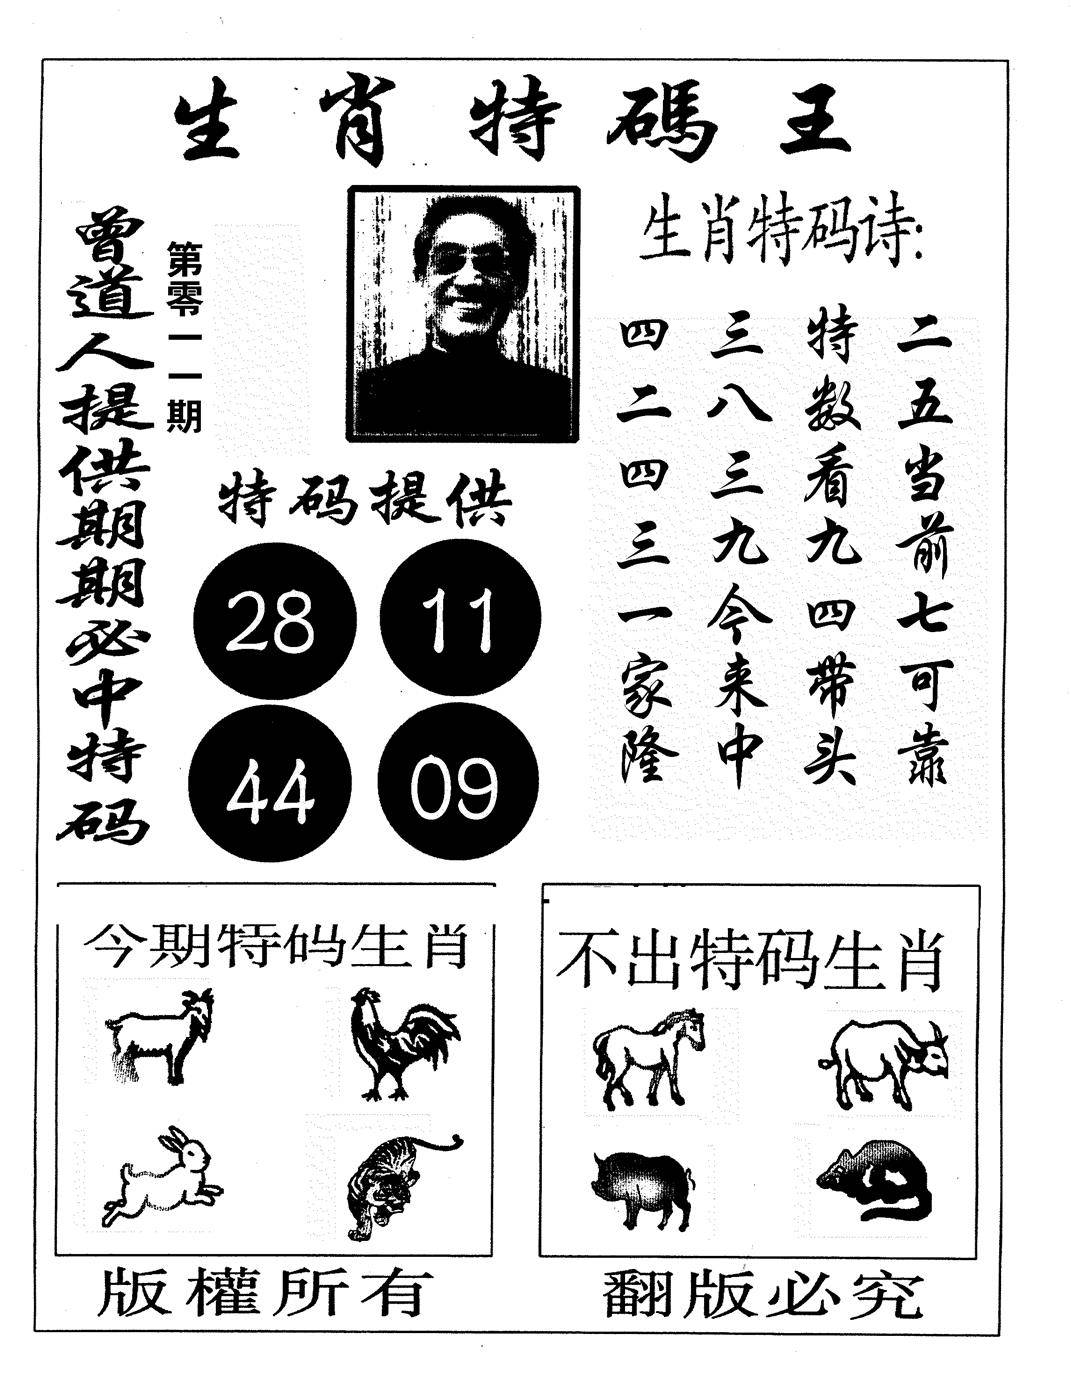 生肖特碼王
曾道人提供期期必中特码
第零一一期
生肖特码诗:
二五当前七可靠
特数看九四带头
三八三九今来中
四二四三一家隆
特码提供
28 11
44 09
今期特码生肖
不出特码生肖
版權所有
翻版必究